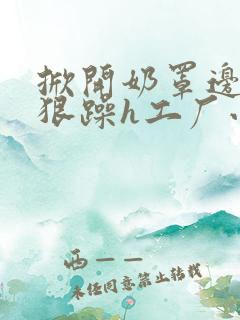 掀開奶罩邊
狠躁h工厂、
西——
未任同意禁止转载